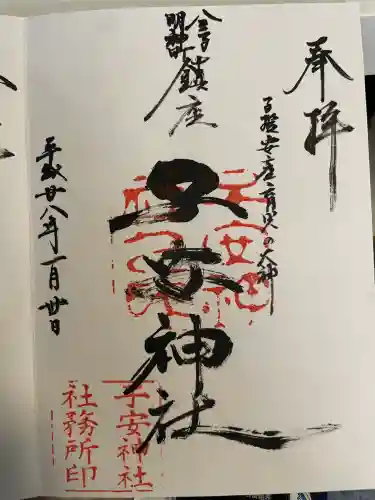 奉拝
子授安産育児の大神
八王子
明神町
鎮座
子安神社
平成廿八年一月廿日
子安神社
社務所印